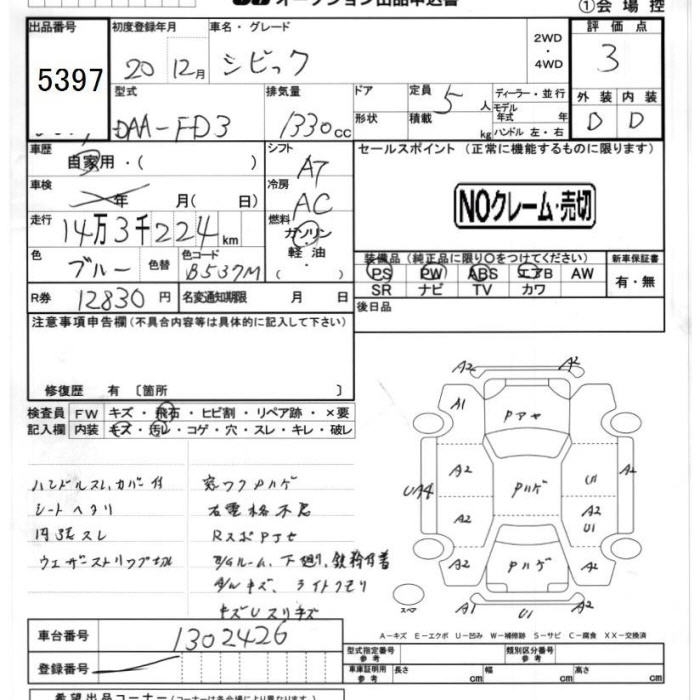 オークション出品申込書
①会場控
出品番号 初度登録年月 車名・グレード 2WD・4WD 評価点
5397 20 12月 シビック 3
型式 排気量 ドア 定員 5人 ディーラー・並行 外装 内装
DAA-FD3 1330cc 形状 積載 kg モデル年式 年 ハンドル 左・右 D D
車歴 自家用・( ) シフト AT セールスポイント(正常に機能するものに限ります)
車検 年 月( 日) 冷房 AC NOクレーム・売切
走行 14万3千224km 燃料 ガソリン 軽油 ( )
色 ブルー 色替 色コード B537M
装備品(純正品に限り○をつけてください) 新車保証書
PS PW ABS エアB AW 有・無
SR ナビ TV カワ
R券 12830円 名変通知期限 月 日 後日品
注意事項申告欄(不具合内容等は具体的に記入して下さい)
修復歴 有〔箇所 〕
検査員 FW キズ・飛石・ヒビ割・リペア跡・×要
記入欄 内装 キズ・汚レ・コゲ・穴・スレ・キレ・破レ
ハンドルスレ,カバー付
シートヘタリ
内張スレ
ウェザストリップ切
窓ワクPハゲ
右電格不良
下廻り
ライトクモリ
A2 A2
A1 Pアセ A2
A2 Pハゲ U1 A2
UA4
A2 A2 U1
A2 Pハゲ A2
スペア A1 U1 A2
A-キズ E-エクボ U-凹み W-補修跡 S-サビ C-腐食 XX-交換済
車台番号 1302426
登録番号
型式指定番号 参考 類別区分番号 参考
車庫証明用 参考 長さ cm 幅 cm 高さ cm
希望出品コーナー(コーナーは各会場により異なります)